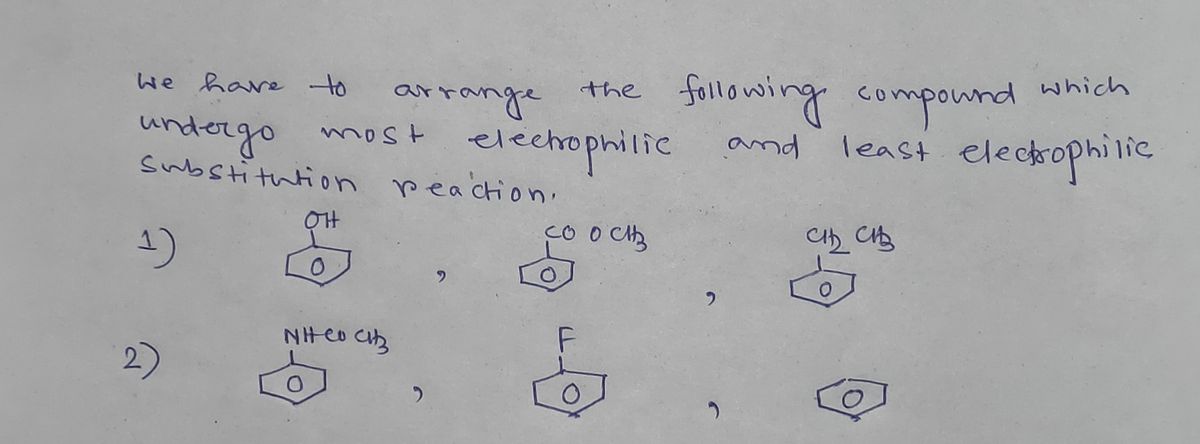 We have to arrange the following compound which
undergo most electrophilic and least electrophilic
Substitution reaction.
OH COOCH3 CH2 CH3
1) , ,
NHCOCH3 F
2) , ,